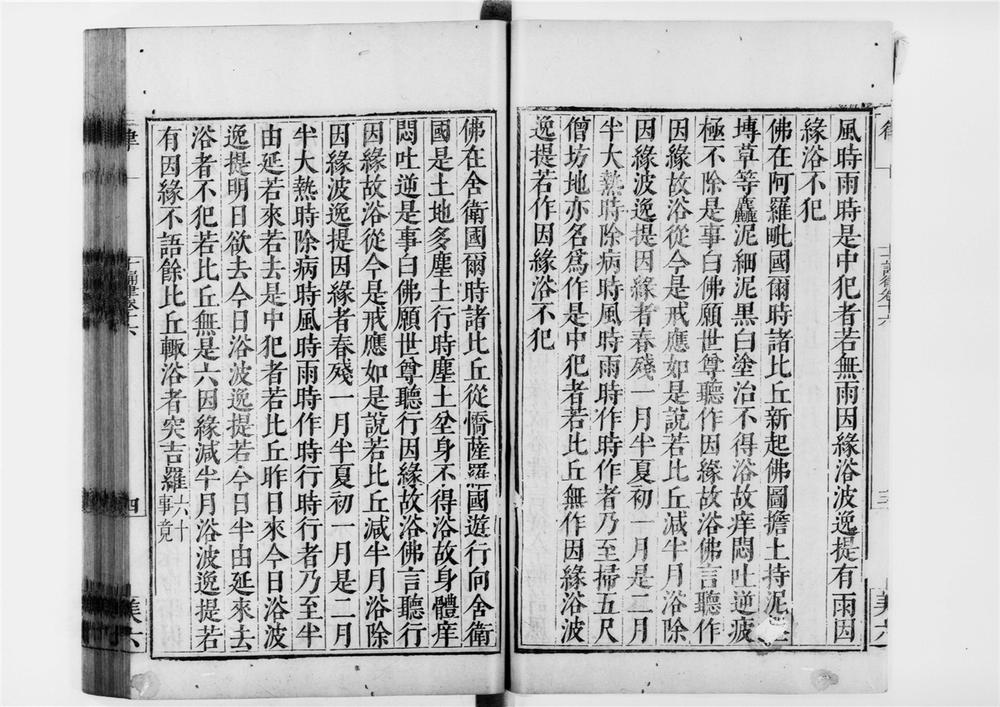 風時雨時是中犯者若無雨因緣浴波逸提有雨因
緣浴不犯
佛在阿羅毗國爾時諸比丘新起佛圖擔土持泥
塼草等麤泥細泥黑白塗治不得浴故痒悶吐逆疲
極不除是事白佛願世尊聽作因緣故浴佛言聽作
因緣故浴從今是戒應如是說若比丘減半月浴除
因緣波逸提因緣者春殘一月半夏初一月是二月
半大熱時除病時風時雨時作時作者乃至掃五尺
僧坊地亦名為作是中犯者若比丘無作因緣浴波
逸提若作因緣浴不犯
佛在舍衛國爾時諸比丘從憍薩羅國遊行向舍衛
國是土地多塵土行時塵土坌身不得浴故身體痒
悶吐逆是事白佛願世尊聽行因緣故浴佛言聽行
因緣故浴從今是戒應如是說若比丘減半月浴除
因緣波逸提因緣者春殘一月半夏初一月是二月
半大熱時除病時風時雨時作時行時行者乃至半
由延若來若去是中犯者若比丘昨日來今日浴波
逸提明日欲去今日浴波逸提若今日半由延來去
浴者不犯若比丘無是六因緣減半月浴波逸提若
有因緣不語餘比丘輙浴者突吉羅六十事竟
律
四
美六
三
美六